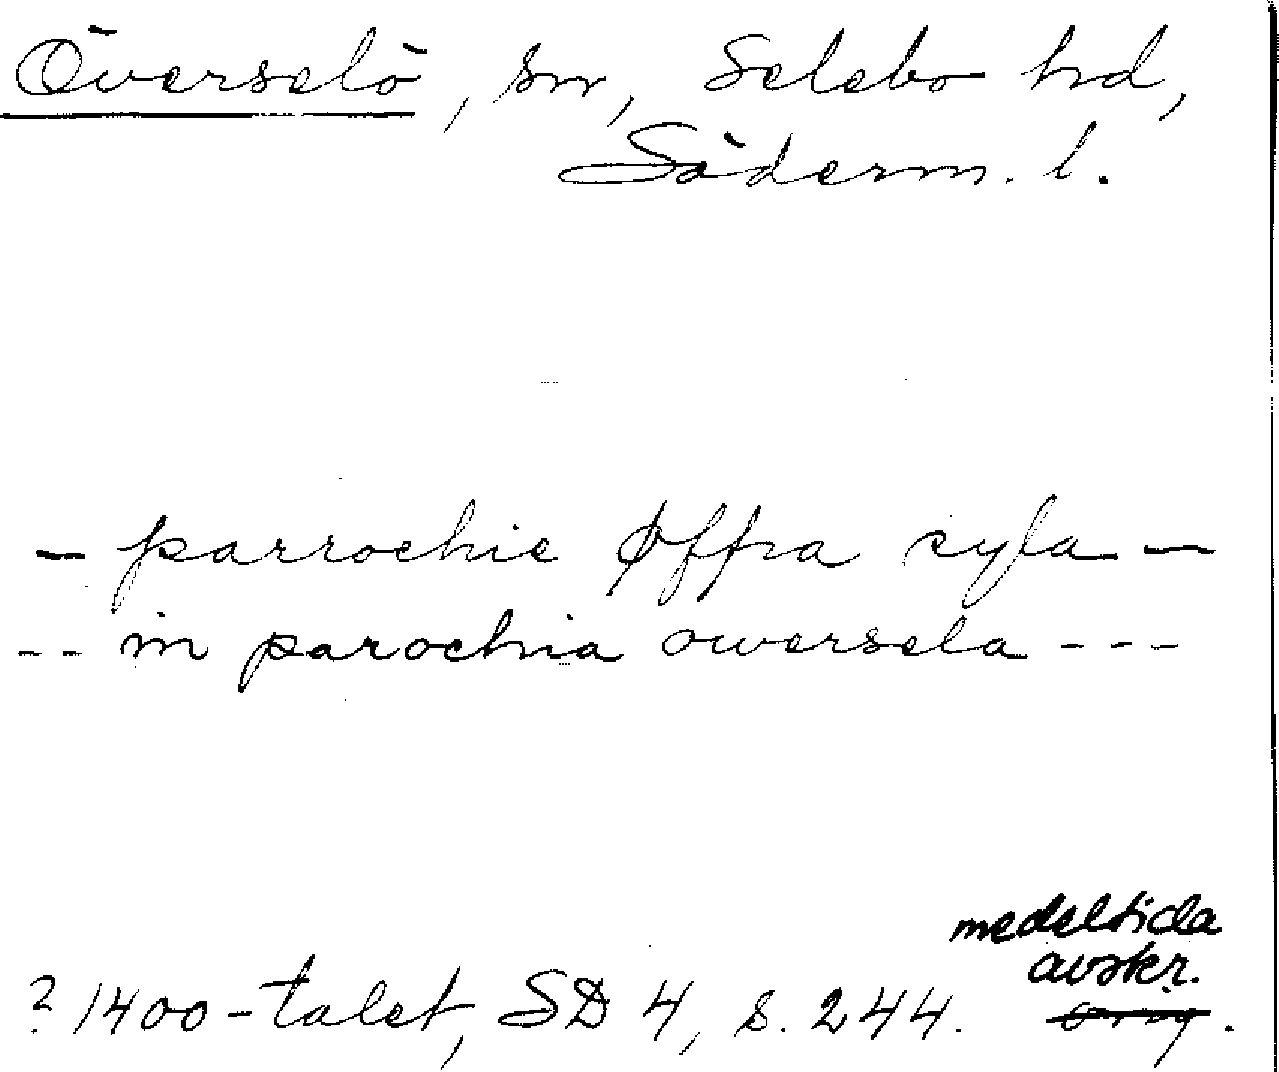 Överselö, sn, Selebo hd,
Söderm. l.
- parrochie øffra syla -
-- in parochia owersela ---
medeltida
avskr.
? 1400-talet, SD 4, s. 244.